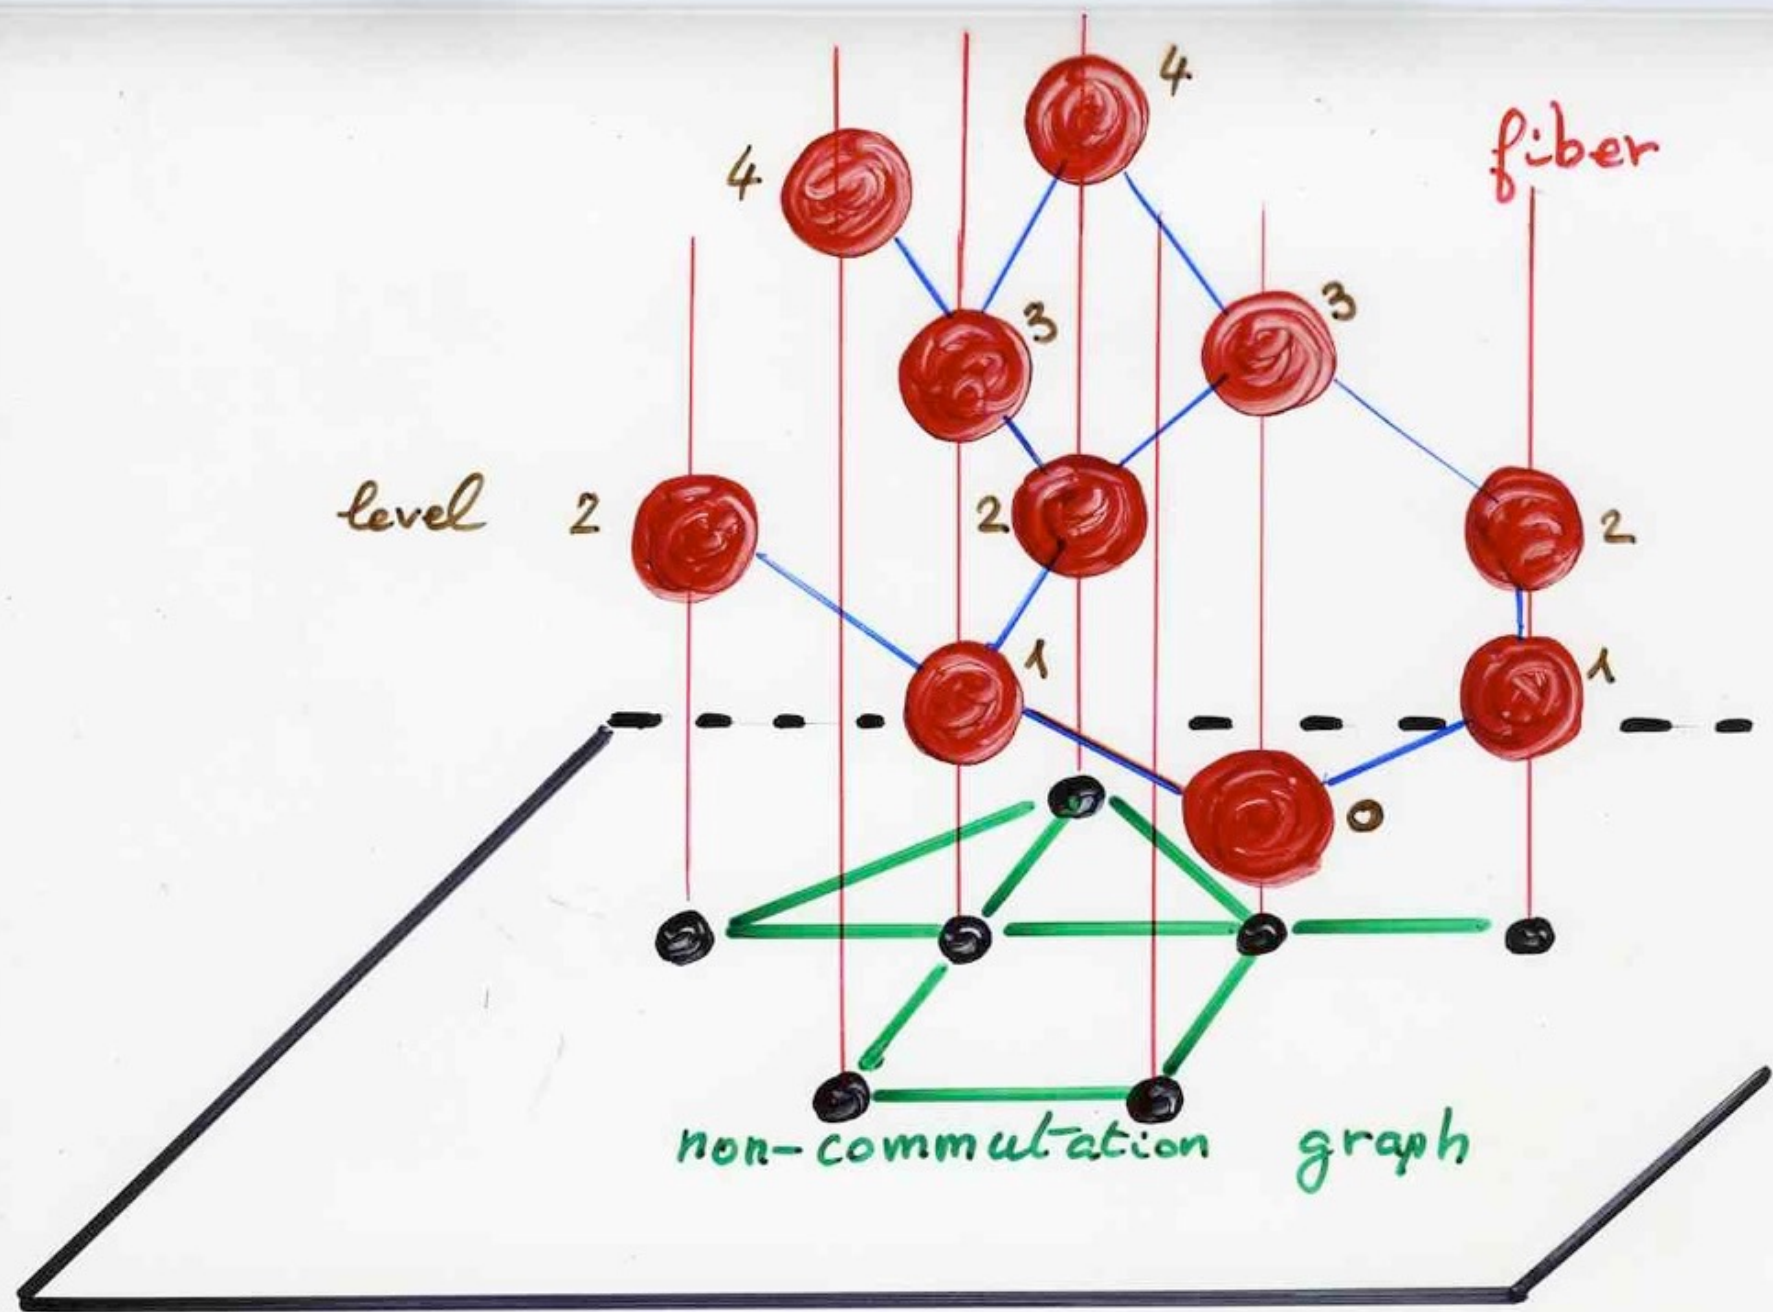 4
4
fiber
3
3
level 2
2
2
1
1
0
non-commutation graph